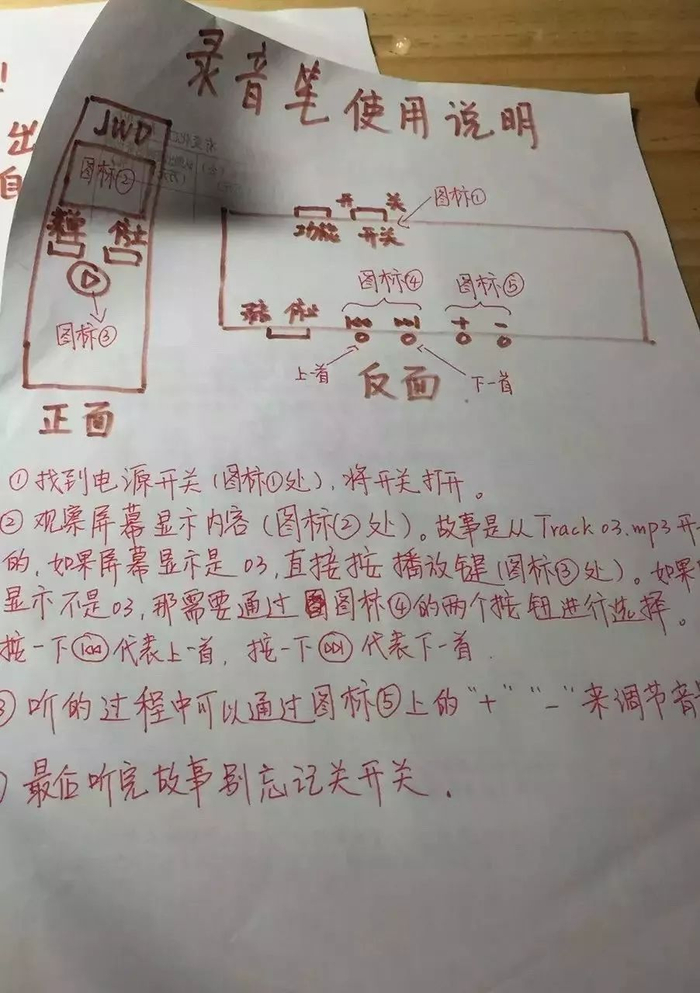 出
自
录音笔使用说明
JWD
图标②
停止
图标③
正面
开 关
图标①
功能 开关
图标④ 图标⑤
停止
+ -
上一首 反面 下一首
①找到电源开关(图标①处),将开关打开。
② 观察屏幕显示内容(图标②处)。故事是从Track 03.mp3开
的,如果屏幕显示是 03,直接按 播放键(图标③处)。如果
显示不是03,那需要通过图标④的两个按钮进行选择。
按一下⏮代表上一首,按一下⏭代表下一首.
③ 听的过程中可以通过图标⑤上的"+" "-"来调节音
最后听完故事别忘记关开关.